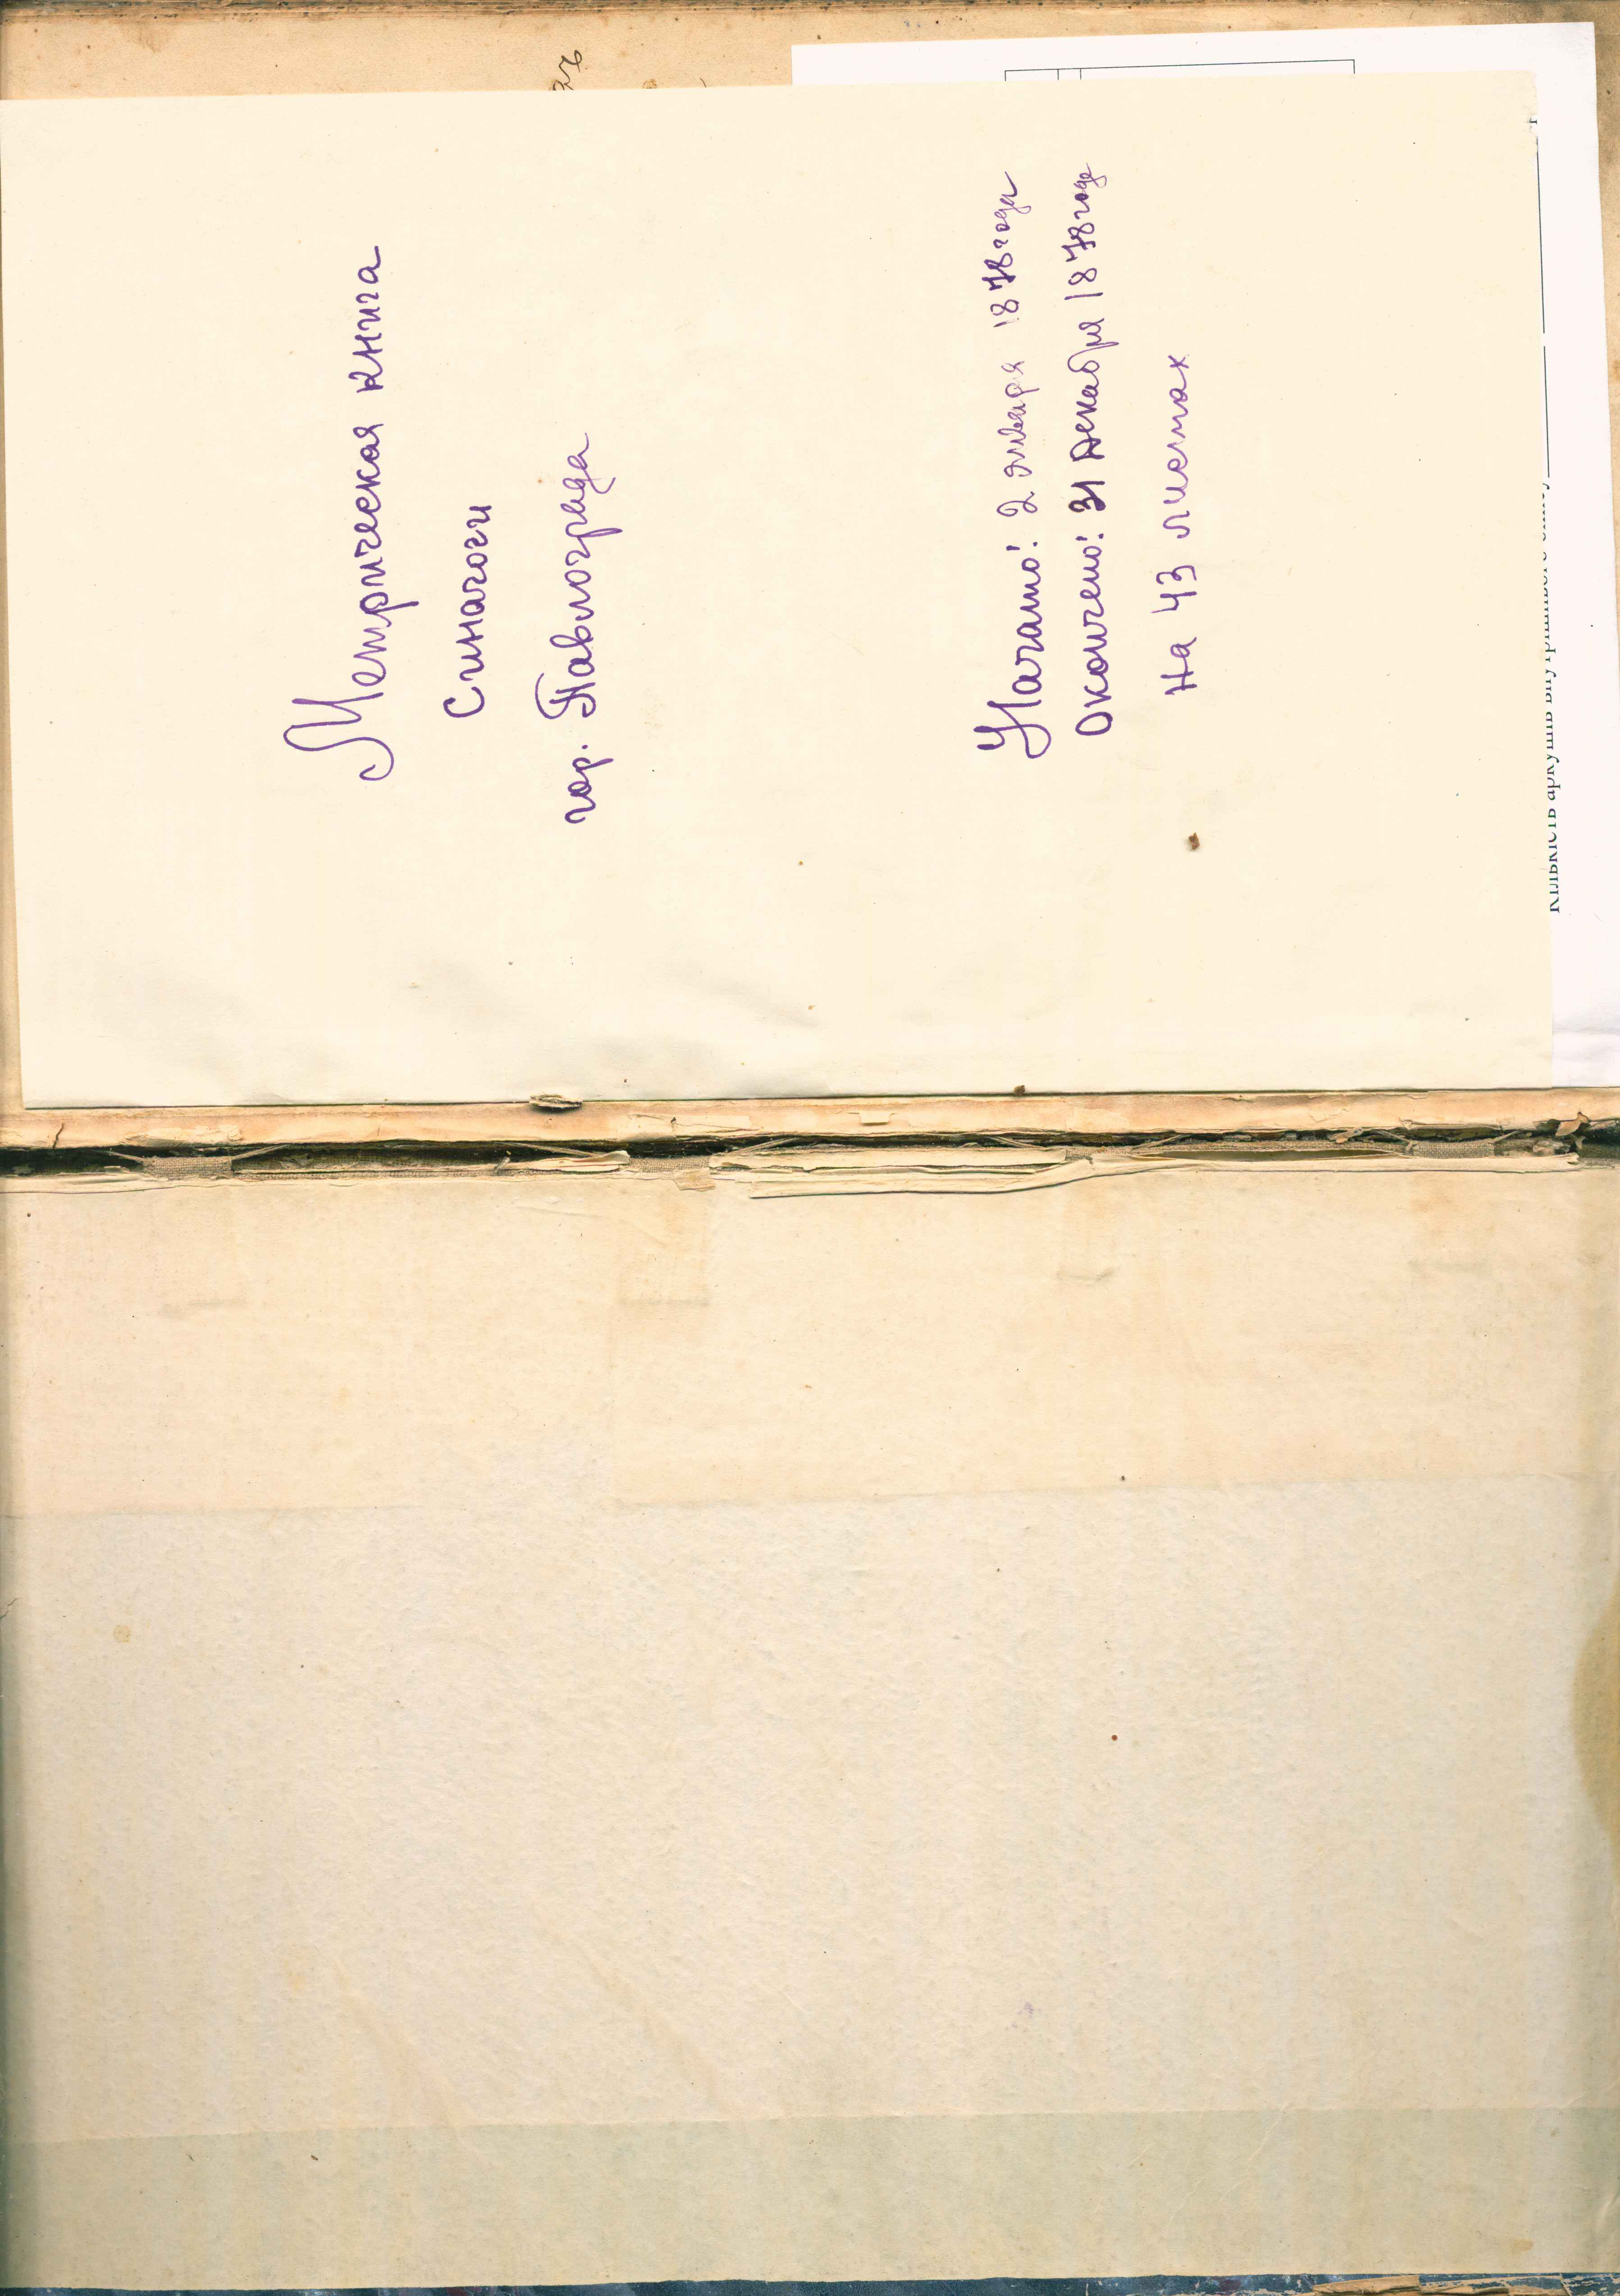 Метрическая книга
Синагоги
гор. Павлограда
Начато: 2 января 1878 года
Окончено: 31 декабря 1878 года
На 43 листах
Кількість аркушів внутрішнього опису